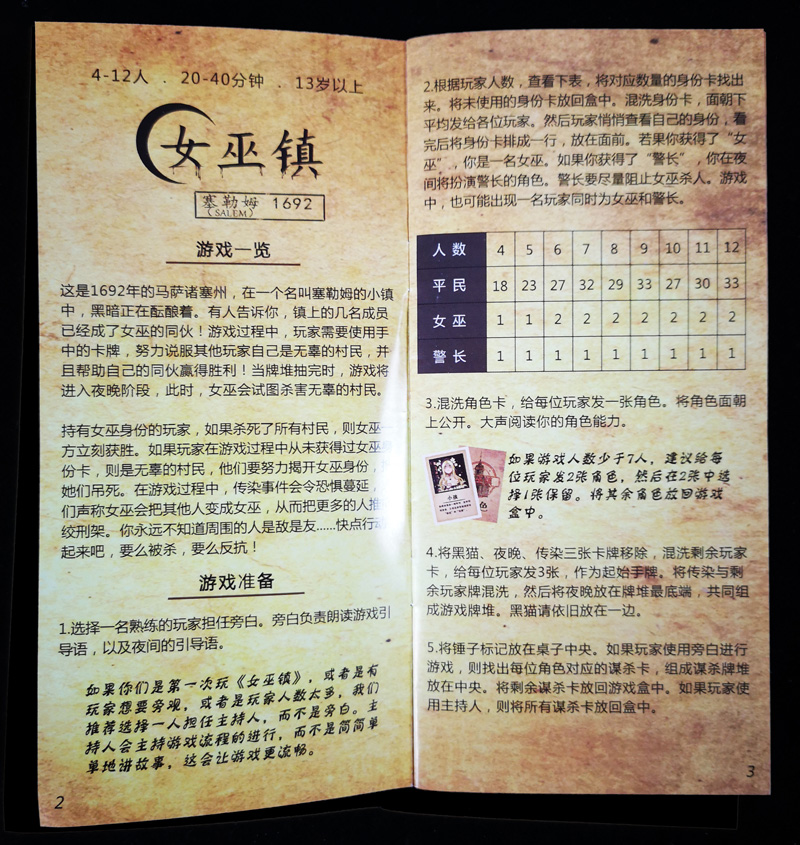 4-12人 . 20-40分钟 . 13岁以上
女巫镇
塞勒姆 1692
(SALEM)
游戏一览
这是1692年的马萨诸塞州，在一个名叫塞勒姆的小镇
中，黑暗正在酝酿着。有人告诉你，镇上的几名成员
已经成了女巫的同伙！游戏过程中，玩家需要使用手
中的卡牌，努力说服其他玩家自己是无辜的村民，并
且帮助自己的同伙赢得胜利！当牌堆抽完时，游戏将
进入夜晚阶段，此时，女巫会试图杀害无辜的村民。
持有女巫身份的玩家，如果杀死了所有村民，则女巫一
方立刻获胜。如果玩家在游戏过程中从未获得过女巫身
份卡，则是无辜的村民，他们要努力揭开女巫身份，
她们吊死。在游戏过程中，传染事件会令恐惧蔓延，
们声称女巫会把其他人变成女巫，从而把更多的人推
绞刑架。你永远不知道周围的人是敌是友......快点行动
起来吧，要么被杀，要么反抗！
游戏准备
1.选择一名熟练的玩家担任旁白。旁白负责朗读游戏引
导语，以及夜间的引导语。
如果你们是第一次玩《女巫镇》，或者是有
玩家想要旁观，或者是玩家人数太多，我们
推荐选择一人担任主持人，而不是旁白。主
持人会主持游戏流程的进行，而不是简简单
单地讲故事，这会让游戏更流畅。
2
2.根据玩家人数，查看下表，将对应数量的身份卡找出
来。将未使用的身份卡放回盒中。混洗身份卡，面朝下
平均发给各位玩家。然后玩家悄悄查看自己的身份，看
完后将身份卡排成一行，放在面前。若果你获得了“女
巫”，你是一名女巫。如果你获得了“警长”，你在夜
间将扮演警长的角色。警长要尽量阻止女巫杀人。游戏
中，也可能出现一名玩家同时为女巫和警长。
人数 4 5 6 7 8 9 10 11 12
平民 18 23 27 32 29 33 27 30 33
女巫 1 1 2 2 2 2 2 2 2
警长 1 1 1 1 1 1 1 1 1
3.混洗角色卡，给每位玩家发一张角色。将角色面朝
上公开。大声阅读你的角色能力。
如果游戏人数少于7人，建议给每
位玩家发2张角色，然后在2张中选
择1张保留。将其余角色放回游戏
盒中。
4.将黑猫、夜晚、传染三张卡牌移除，混洗剩余玩家
卡，给每位玩家发3张，作为起始手牌。将传染与剩
余玩家牌混洗，然后将夜晚放在牌堆最底端，共同组
成游戏牌堆。黑猫请依旧放在一边。
5.将锤子标记放在桌子中央。如果玩家使用旁白进行
游戏，则找出每位角色对应的谋杀卡，组成谋杀牌堆
放在中央。将剩余谋杀卡放回游戏盒中。如果玩家使
用主持人，则将所有谋杀卡放回盒中。
3